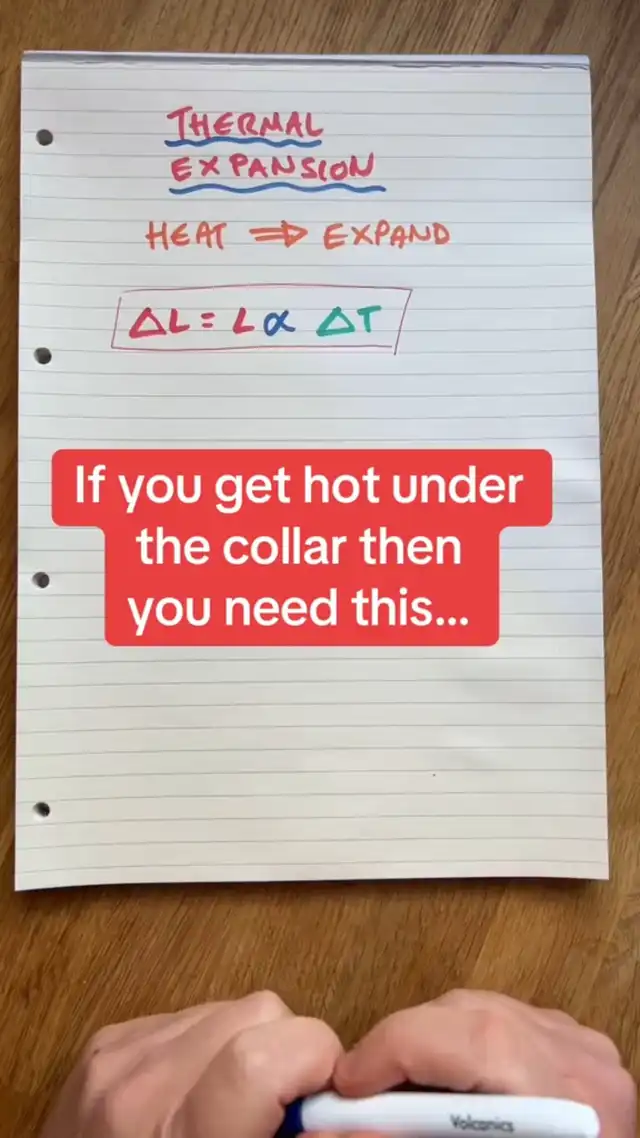 THERMAL
EXPANSION
HEAT ⇒ EXPAND
ΔL = L α ΔT
If you get hot under
the collar then
you need this...
Volcanics